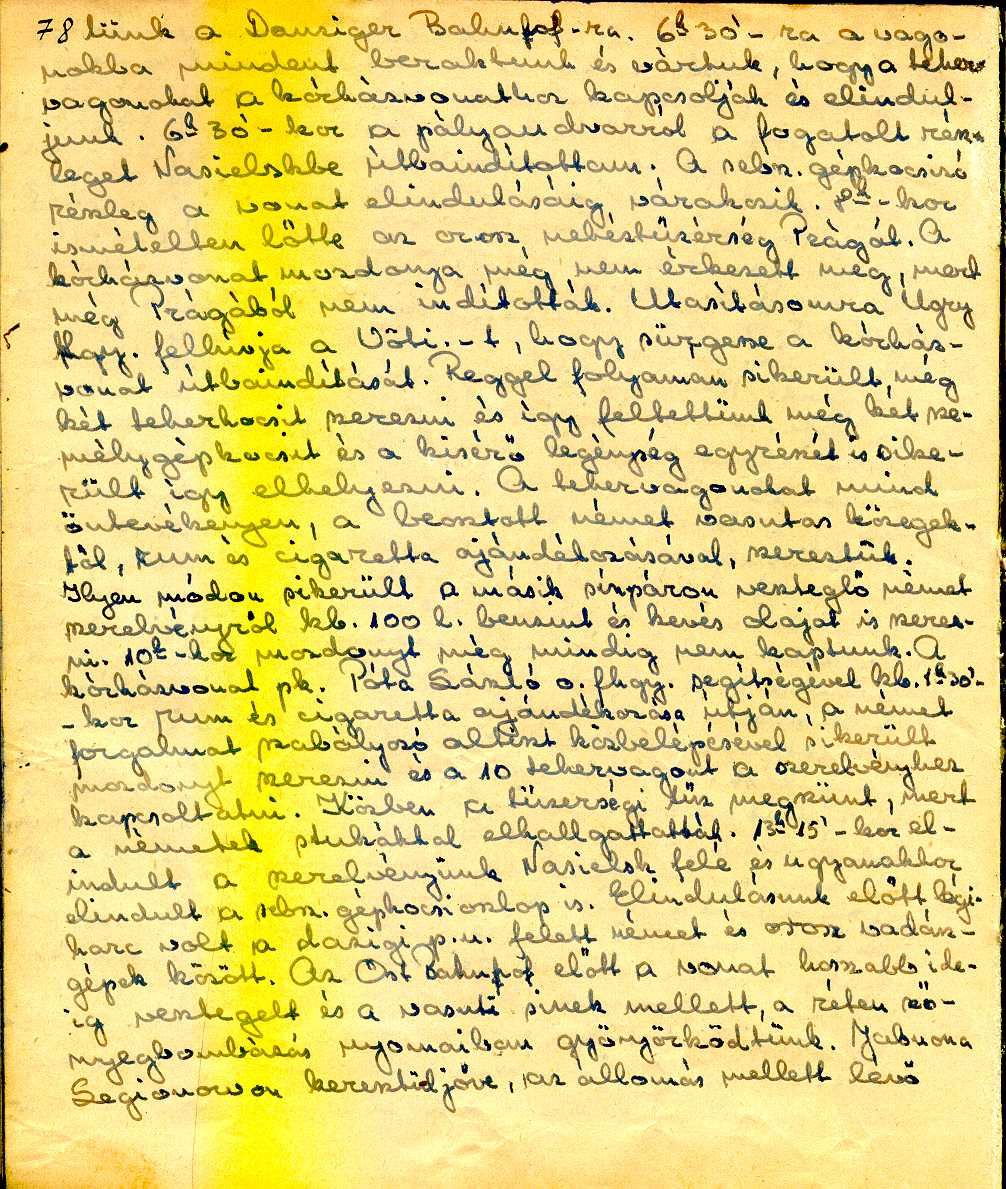 78 tünk a Danziger Bahnhof-ra. 6h 30'-ra a vago-
nokba mindent beraktunk és vártuk, hogy a teher
vagonokat a kórházvonathoz kapcsolják és elindul-
junk. 6h 30'-kor a pályaudvarról a fogatolt rész-
leget Nasielskbe útbaindítottam. A sebz. gépkocsizó
részleg a vonat elindulásáig várakozik. 8h-kor
ismételten lőtte az orosz nehéztüzérség Prágát. A
kórházvonat mozdonya még nem érkezett meg, mert
még Prágából nem indították. Utasításomra Ugry
fhgy. felhívja a Vöti.-t, hogy sürgesse a kórház-
vonat útbaindítását. Reggel folyaman sikerült, még
két teherkocsit szerezni és így feltettünk még két sze-
mélygépkocsit és a kisérő legénység egyrészét is sike-
rült így elhelyezni. A tehervagonokat mind
öntevékenyen, a beosztott német vasutas közegek-
től, rum és cigaretta ajándékozásával, szereztük.
Ilyen módon sikerült a másik sínpáron veszteglő német
szerelvényről kb. 100 l. benzint és kevés olajat is szerez-
ni. 10h-kor mozdonyt még mindig nem kaptunk. A
kórházvonat pk. Póta László o. fhgy. segítségével kb. 1h 30'-
-kor rum és cigaretta ajándékozása útján, a német
forgalmat szabályozó altiszt közbelépésével sikerült
mozdonyt szerezni és a 10 tehervagont a szerelvényhez
kapcsoltatni. Közben a tüzérségi tűz megszünt, mert
a németek stukákkal elhallgattatták. 13h 15'-kor el-
indult a szerelvényünk Nasielsk felé és ugyanakkor
elindult a sebz. gépkocsioszlop is. Elindulásunk előtt légi-
harc volt a dazigi p.u. felett német és orosz vadász-
gépek között. Az Ost Bahnhof előtt a vonat hosszabb ide-
ig vesztegelt és a vasuti sinek mellett, a réten sző-
nyegbombázás nyomaiban gyönyörködtünk. Jabuona
Legionowon keresztüljőve, az állomás mellett levő